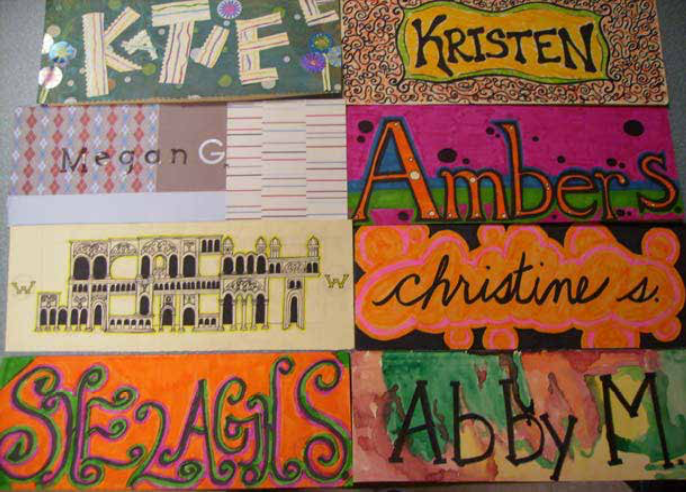 KATIE
KRISTEN
Megan G.
Amber S.
W W
christine s.
SHELAGH S
Abby M.